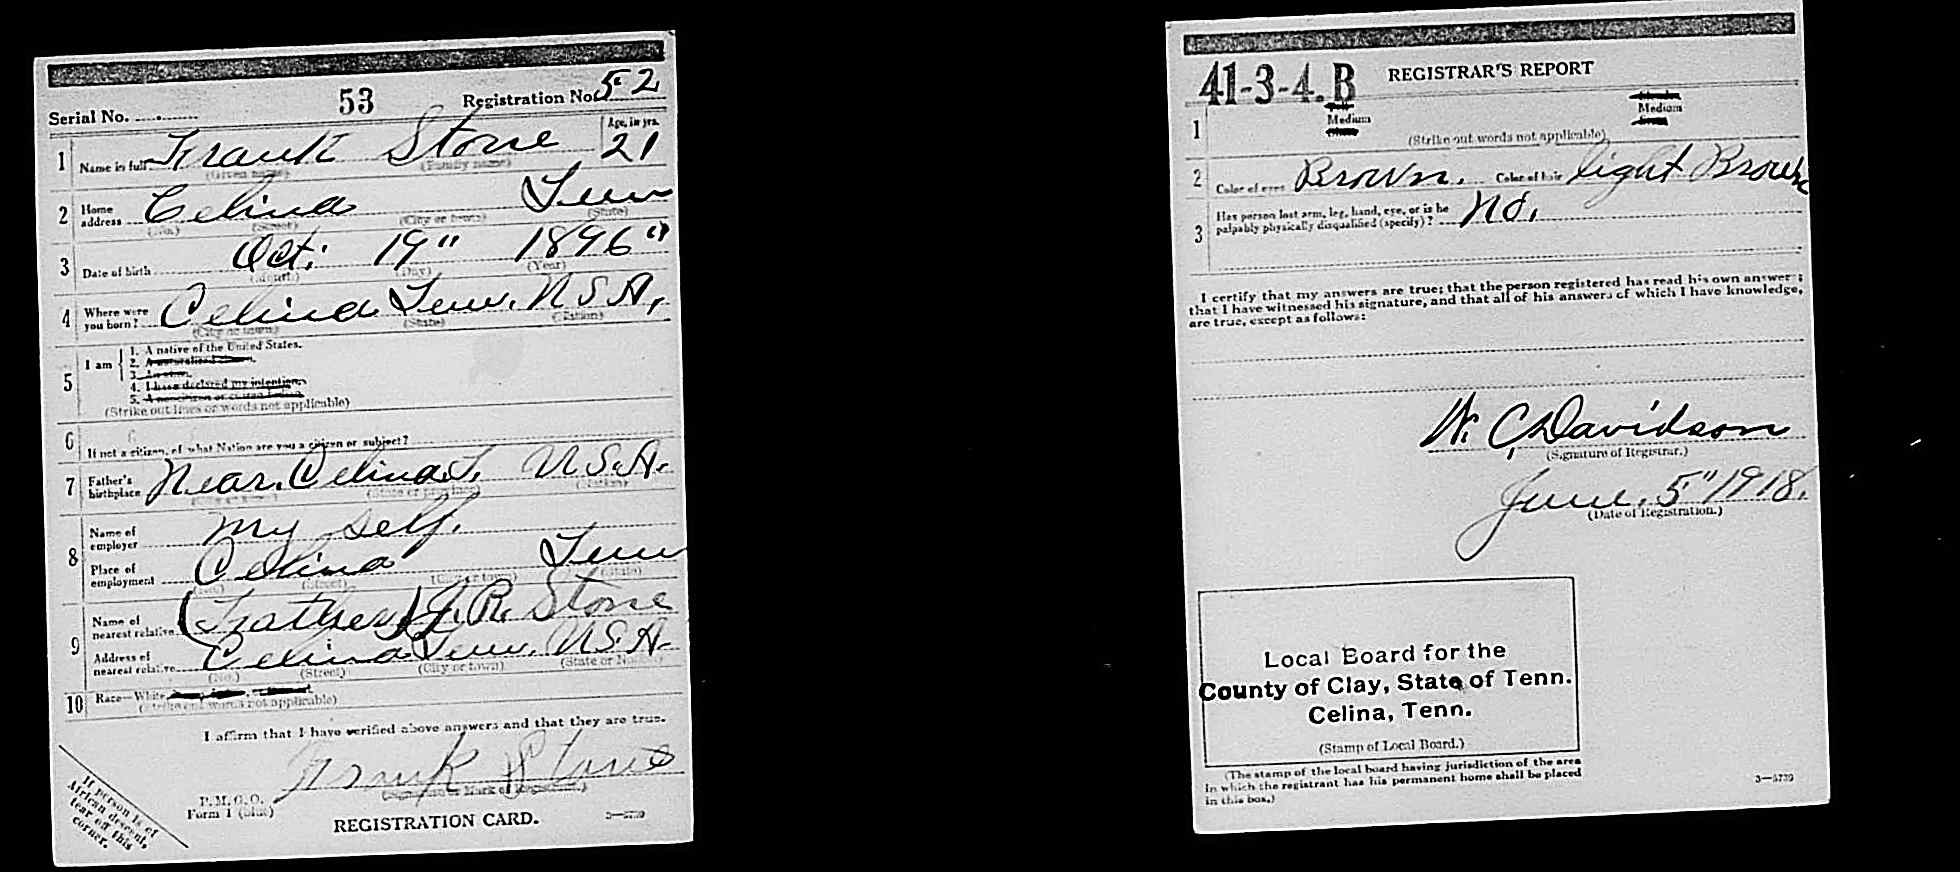 Serial No. 53 Registration No. 52
1 Name in full Frank Stone Age, in yrs. 21
(Given name) (Family name)
2 Home address Celina Tenn
(No.) (Street) (City or town) (State)
3 Date of birth Oct. 19" 1896"
(Month) (Day) (Year)
4 Where were you born? Celina Tenn. U.S.A.
(City or town) (State) (Nation)
5 I am
1. A native of the United States.
2. A naturalized citizen.
3. An alien.
4. I have declared my intention.
5. A noncitizen or citizen Indian.
(Strike out lines or words not applicable)
6 If not a citizen, of what Nation are you a citizen or subject?
7 Father's birthplace Near. Celina T. U.S.A.
(City or town) (State or province) (Nation)
8 Name of employer my self.
Place of employment Celina Tenn
(No.) (Street) (City or town) (State)
9 Name of nearest relative (Father) J.R. Stone
Address of nearest relative Celina Tenn. U.S.A.
(No.) (Street) (City or town) (State or Nation)
10 Race—White
(Strike out words not applicable)
I affirm that I have verified above answers and that they are true.
Frank Stone
(Signature or Mark of Registrant.)
If person is of
African descent,
tear off this
corner.
P. M. G. O.
Form 1 (blue)
REGISTRATION CARD.
3—5739
41-3-4. B REGISTRAR'S REPORT
1 Tall Medium Medium
(Strike out words not applicable)
2 Color of eyes Brown. Color of hair light Brown
3 Has person lost arm, leg, hand, eye, or is he
palpably physically disqualified (specify)? No.
I certify that my answers are true; that the person registered has read his own answers;
that I have witnessed his signature, and that all of his answers of which I have knowledge,
are true, except as follows:
W. C. Davidson
(Signature of Registrar.)
June. 5" 1918.
(Date of Registration.)
Local Board for the
County of Clay, State of Tenn.
Celina, Tenn.
(Stamp of Local Board.)
(The stamp of the local board having jurisdiction of the area
in which the registrant has his permanent home shall be placed
in this box.)
3—5739